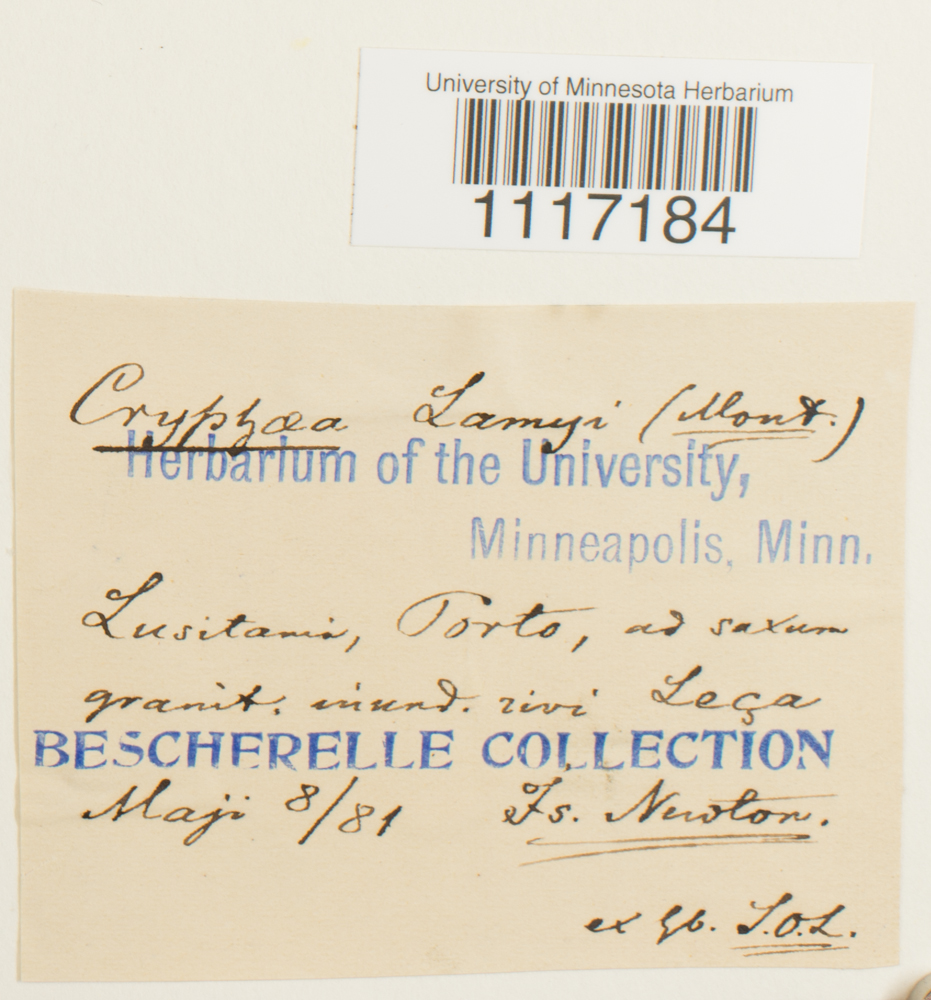 University of Minnesota Herbarium
1117184
Cryphæa Lamyi (Mont.)
Herbarium of the University,
Minneapolis, Minn.
Lusitania, Porto, ad saxum
granit. inund. rivi Leça
BESCHERELLE COLLECTION
Maji 8/81 Fs. Newton.
ex hb. S.O.L.